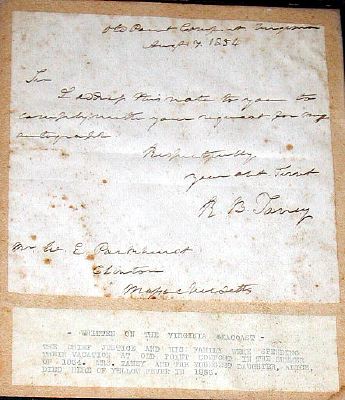 Old Point Comfort Virginia
Augt 7. 1854
Sir
I address this note to you to
comply with your request for my
autograph
Respectfully
your obt Servt
R B Taney
Mr W. E. Parkhurst
Clinton
Massachusetts
- WRITTEN ON THE VIRGINIA SEACOAST -
THE CHIEF JUSTICE AND HIS FAMILY WERE SPENDING
THEIR VACATION AT OLD POINT COMFORT IN THE SUMMER
OF 1854. MRS. TANEY AND THE YOUNGEST DAUGHTER, ALICE,
DIED HERE OF YELLOW FEVER IN 1855.